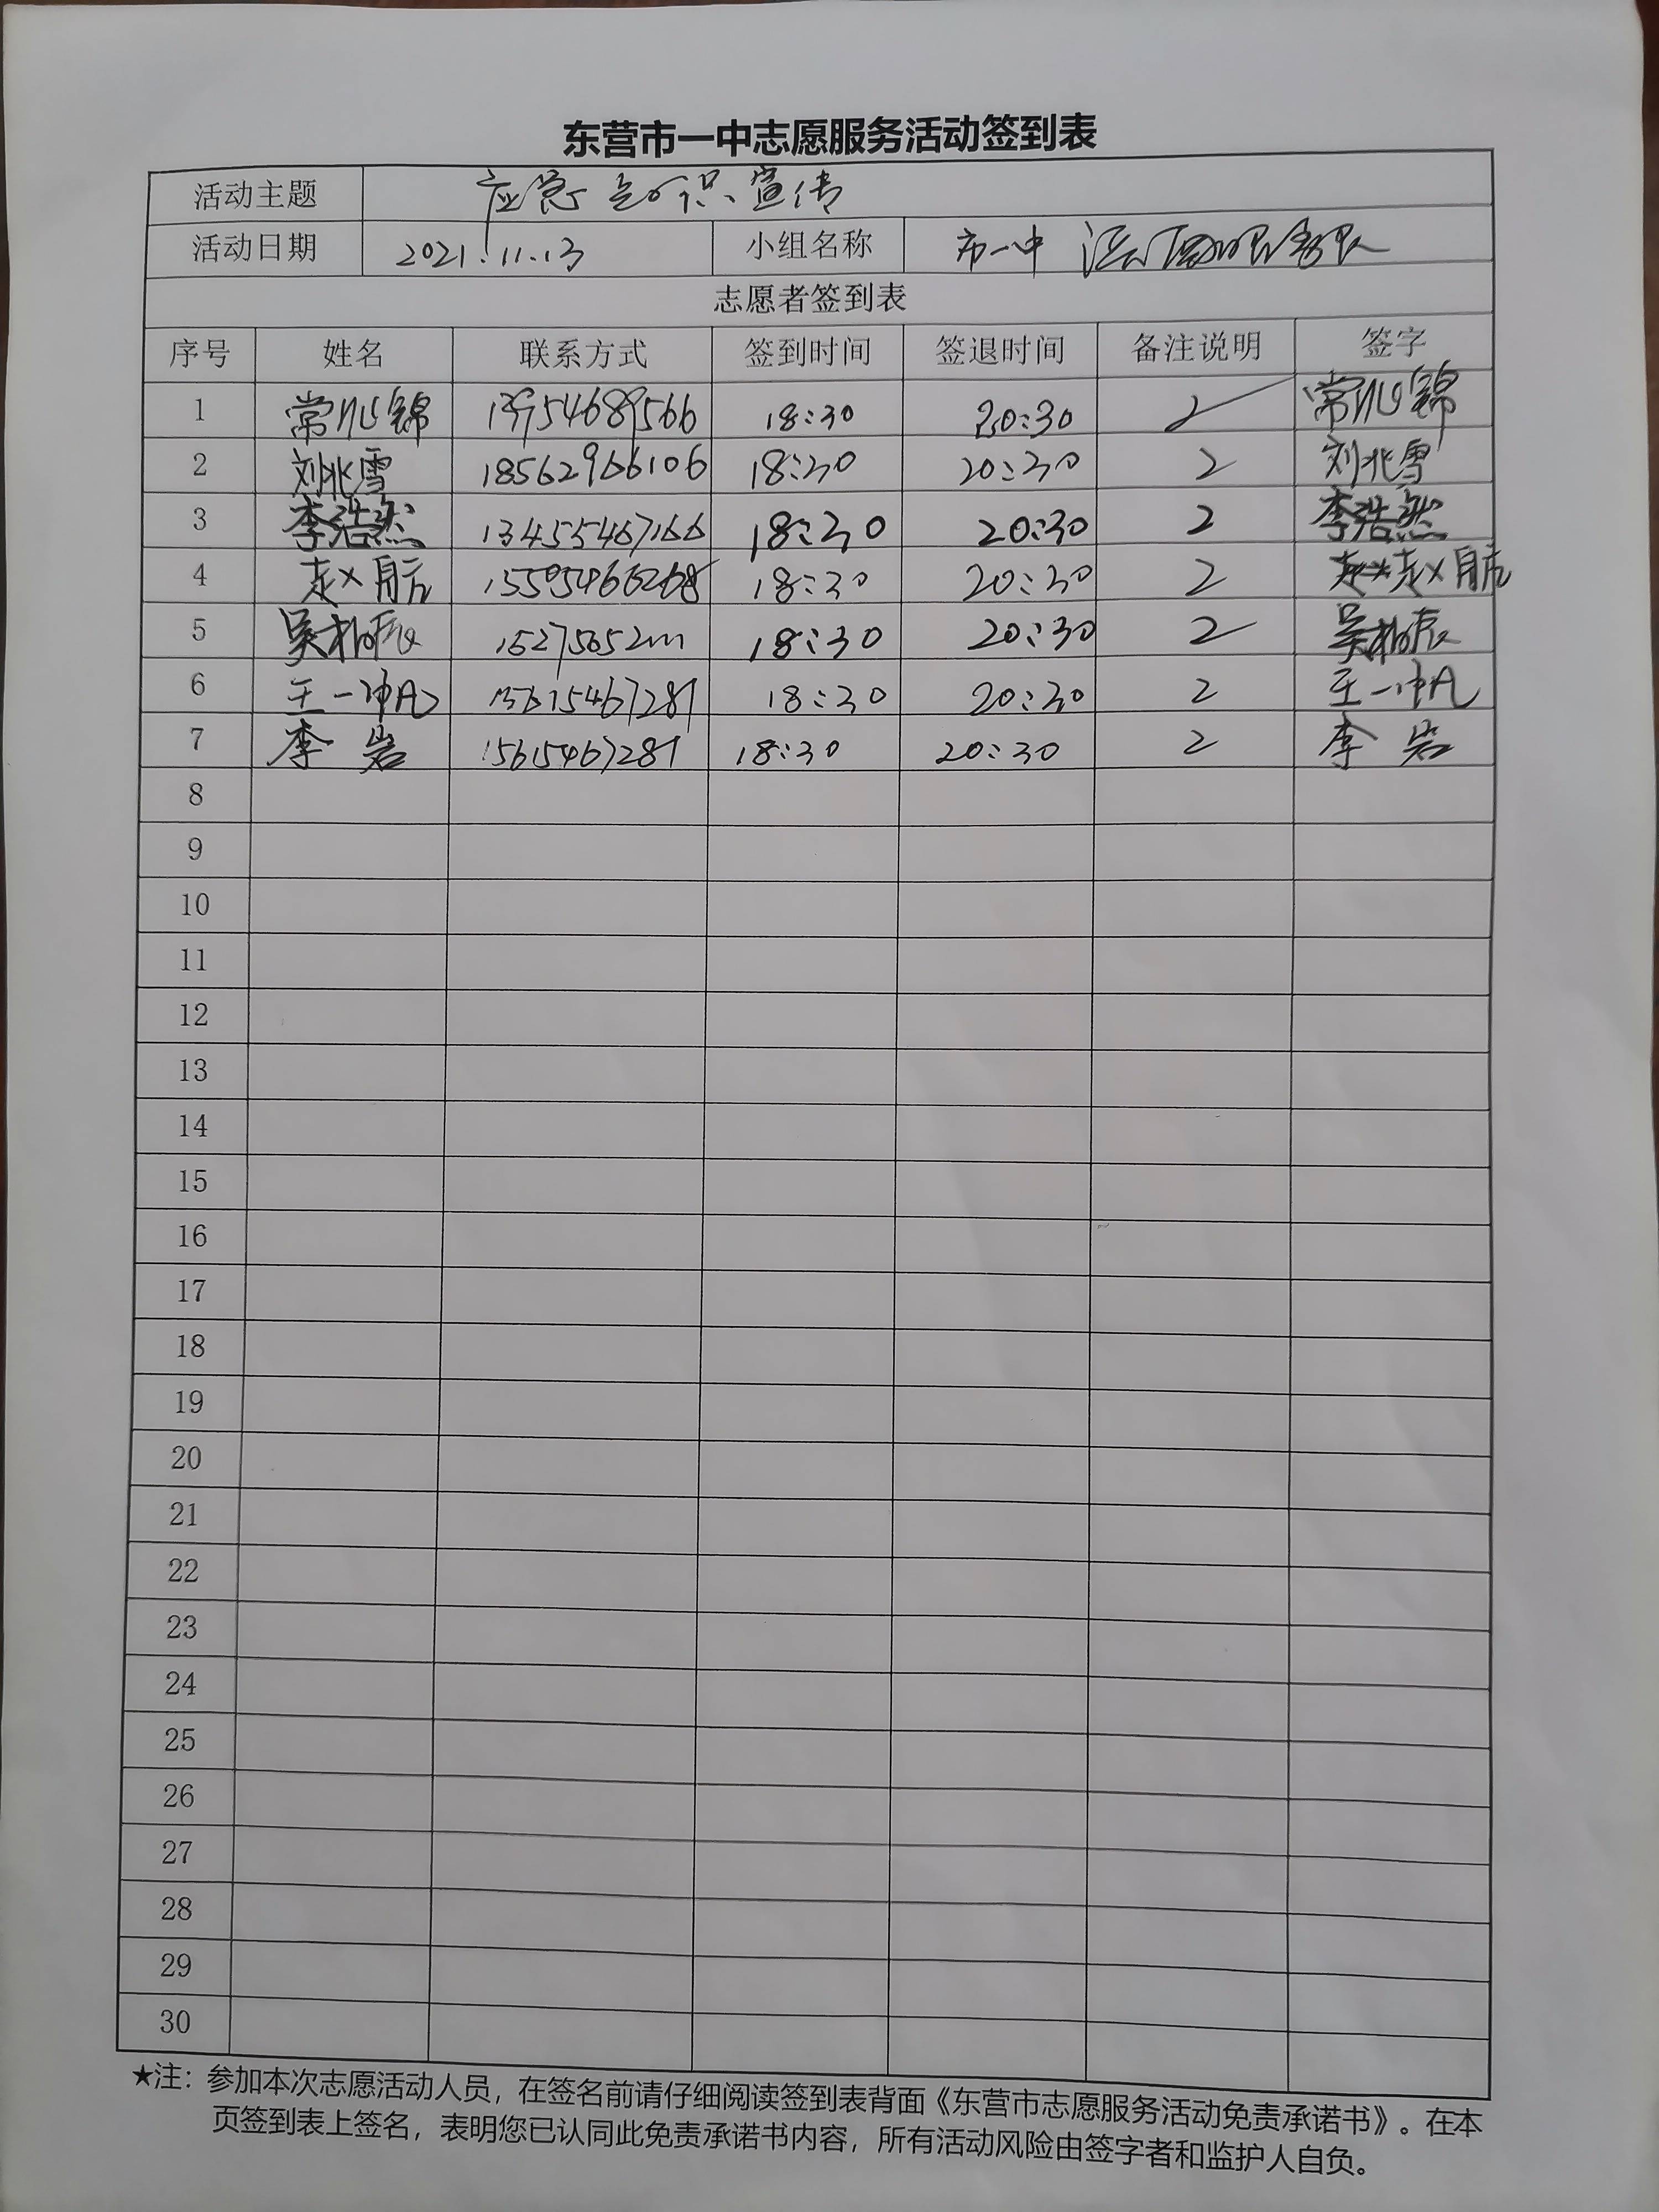 东营市一中志愿服务活动签到表
活动主题 应急知识宣传
活动日期 2021.11.13 小组名称 市一中
志愿者签到表
序号 姓名 联系方式 签到时间 签退时间 备注说明 签字
1 常沁锦 13954689566 18:30 20:30 2 常沁锦
2 刘兆雪 18562966106 18:30 20:30 2 刘兆雪
3 李浩然 13455467166 18:30 20:30 2 李浩然
4 赵航 18:30 20:30 2 赵航
5 吴柏辰 18:30 20:30 2 吴柏辰
6 王一冲凡 15615467281 18:30 20:30 2 王一冲凡
7 李岩 15615467281 18:30 20:30 2 李岩
8
9
10
11
12
13
14
15
16
17
18
19
20
21
22
23
24
25
26
27
28
29
30
★注：参加本次志愿活动人员，在签名前请仔细阅读签到表背面《东营市志愿服务活动免责承诺书》。在本
页签到表上签名，表明您已认同此免责承诺书内容，所有活动风险由签字者和监护人自负。